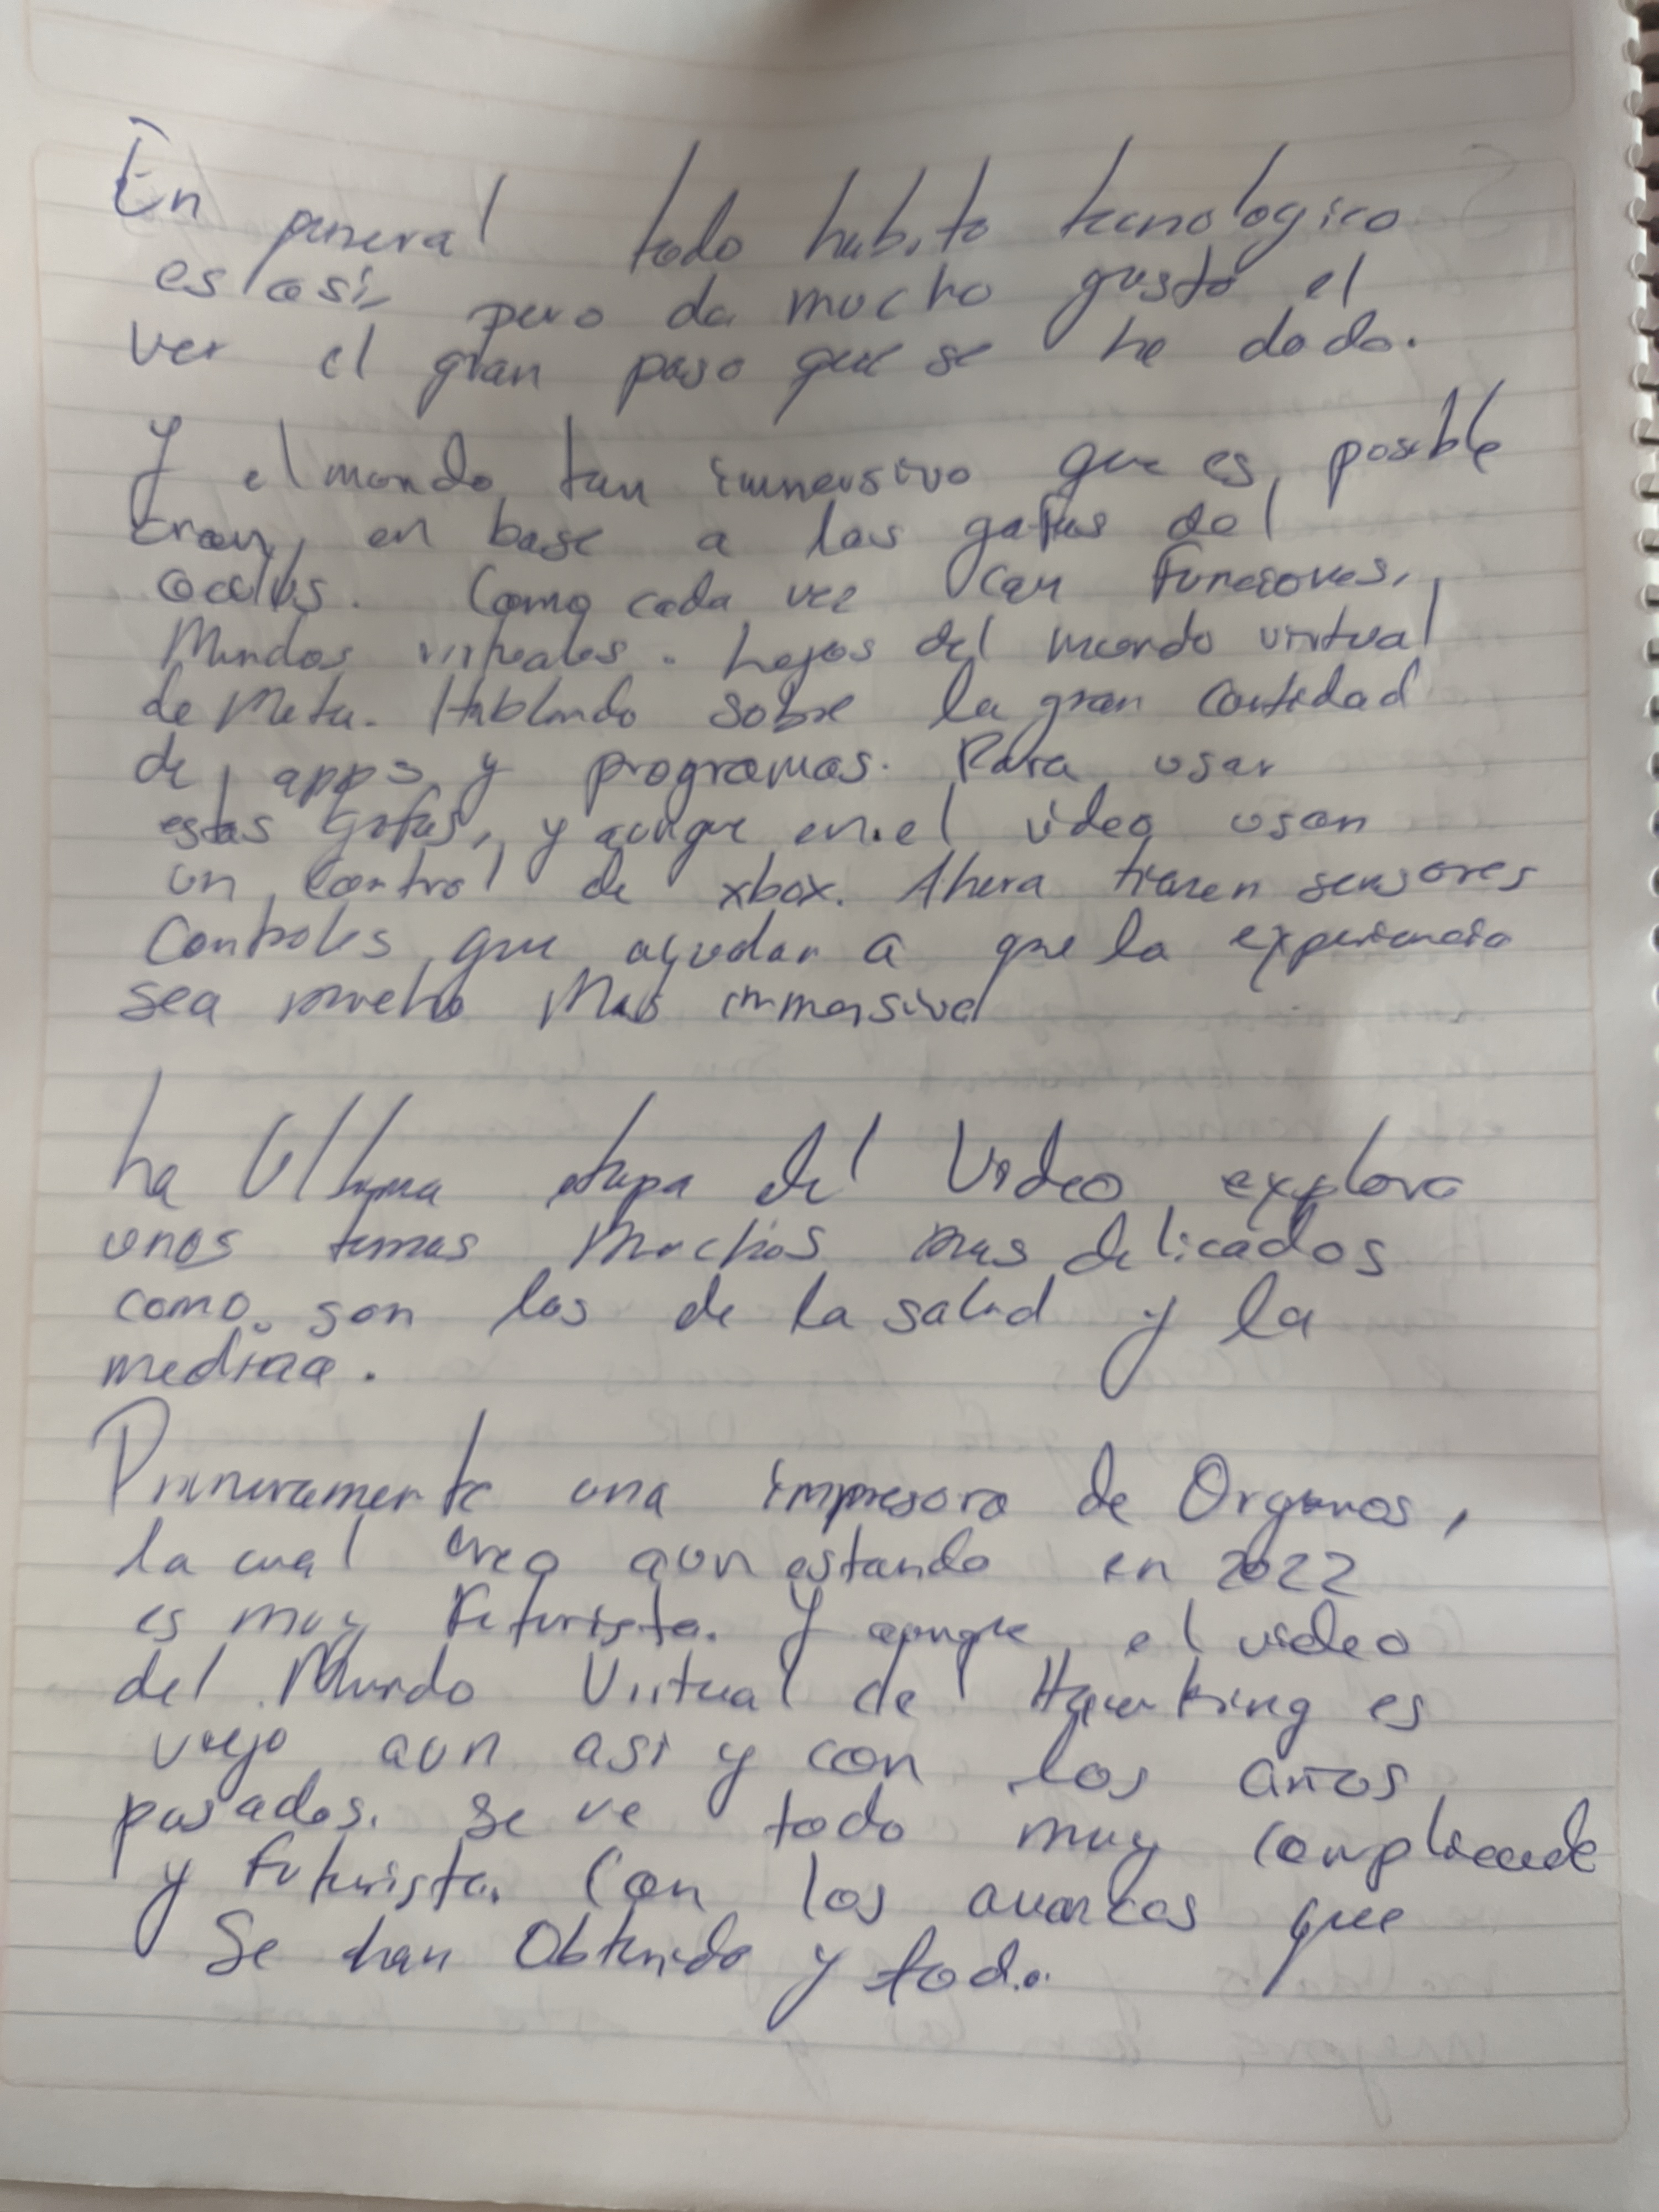 En general todo habito tecnologico
es asi, pero da mucho gusto el
ver el gran paso que se ha dado.
Y el mundo tan inmersivo que es posible
crear, en base a las gafas del
oculus. Como cada vez can funciones,
Mundos virtuales. Lejos del mundo virtual
de Meta. Hablando sobre la gran cantidad
de apps y programas. Para usar
estas Gafas, y aunque en el video usan
un control de xbox. Ahora tienen sensores
Controles que ayudan a que la experiencia
sea mucho Mas immersiva
La Ultima etapa del Video explora
unos temas Muchos mas delicados
como son los de la salud y la
Primeramente una impresora de Organos,
la cual creo aun estando en 2022
es muy Futurista. Y aunque el video
del Mundo Virtual de Hawking es
viejo aun asi y con los años
pasados. Se ve todo muy
y futurista. Con los avances que
Se han Obtenido y todo.